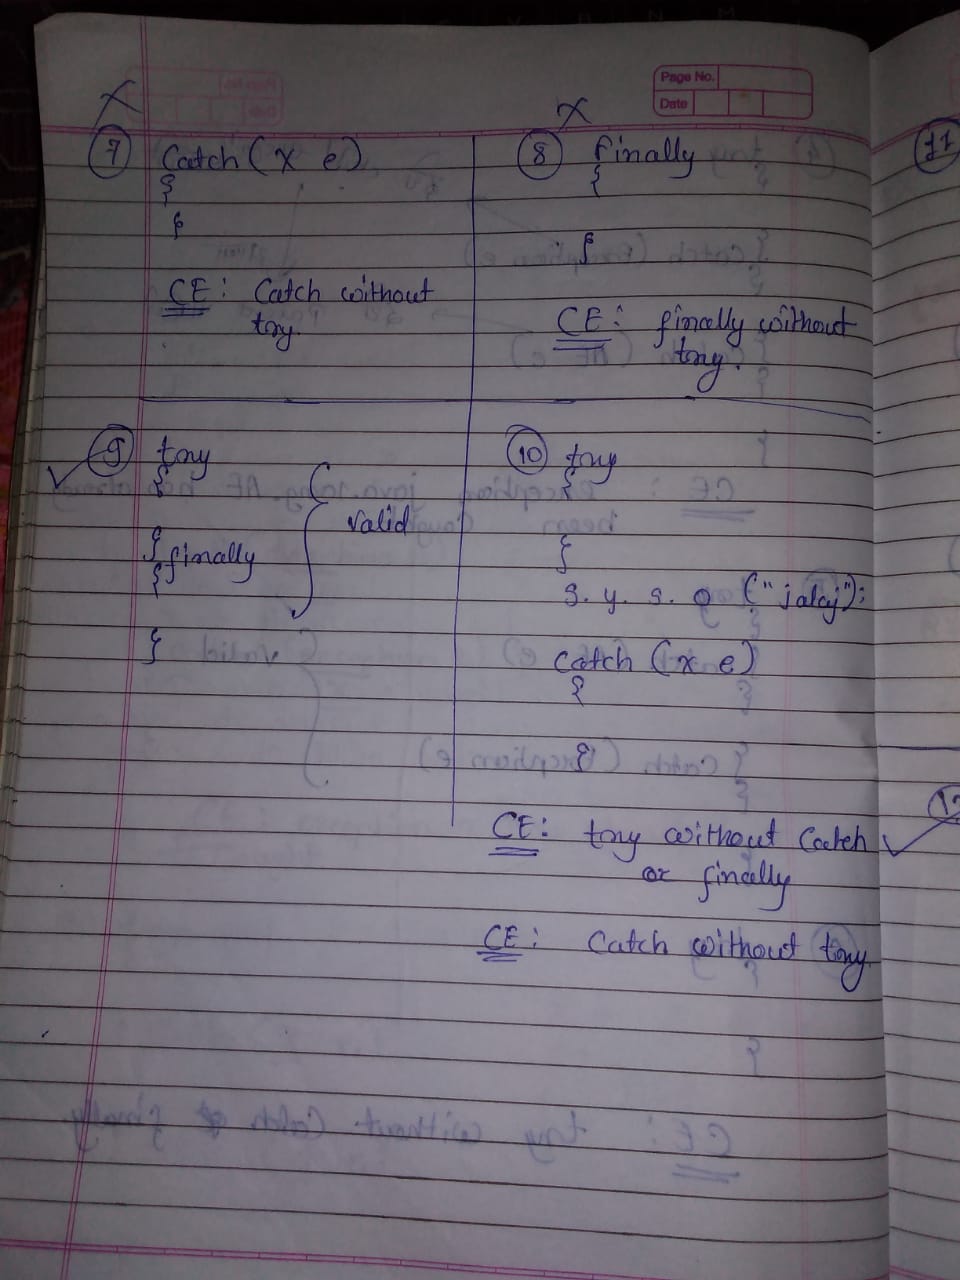 Page No.
Date
X
7 Catch (X e)
{
}
CE: Catch without
try.
X
8 finally
{
}
CE: finally without
try.
9 try
{
}
finally
{
}
valid
10 try
{
}
S. y. s. o ("jalaj");
catch (x e)
{
}
CE: try without Catch
or finally
CE: Catch without try
11
12